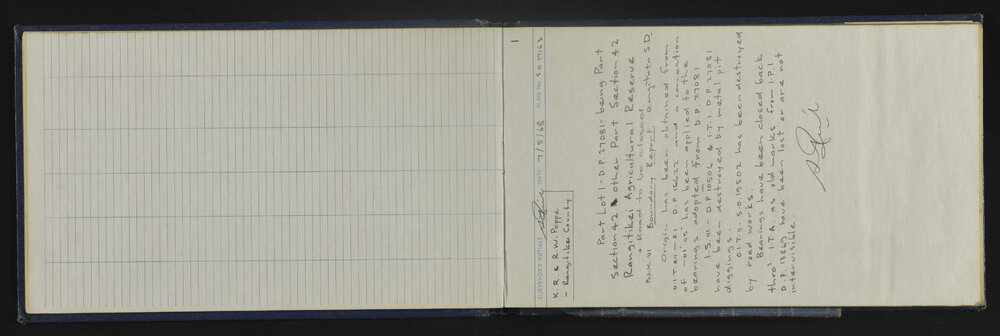 1
SURVEYOR'S INITIALS DATE 7/5/68 PLAN No. S.O. 27163
K. R. & R. W. Poppe
- Rangitikei County
Part Lot 1 - D.P. 27081 - being Part
Section 42 & other Part Section 42
Rangitikei Agricultural Reserve
+ Road to be closed
BLK VI Boundary Report Rangitoto S.D.
Origin has been obtained from
D.P. 16622 and a correction
of -01'05" has been applied to the
bearings adopted from D.P. 27081
I.S. III - D.P. 10504 & I.T. I D.P. 27081
have been destroyed by metal pit
diggings.
O.I.T. II. S.O. 19302 has been destroyed
by road works.
Bearings have been closed back
thro' I.T.A. as old marks from I.P. I
D.P. 13569 have been lost or are not
intervisible